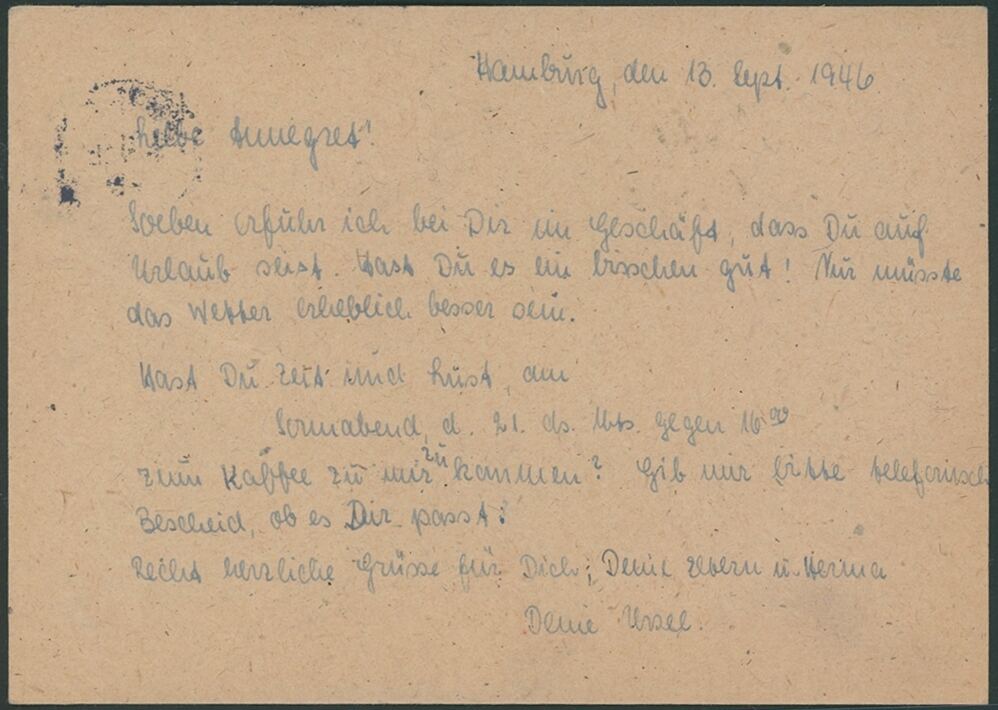 Hamburg, den 13. Sept. 1946
Liebe Annegret!
Soeben erfuhr ich bei Dir im Geschäft, dass Du auf
Urlaub seist. Hast Du es ein bisschen gut! Nur müsste
das Wetter erheblich besser sein.
Hast Du Zeit und Lust, am
Sonnabend, d. 21. ds. Mts. gegen 16 00
zum Kaffee zu mir zu kommen? Gib mir bitte telefonisch
Bescheid, ob es Dir passt!
Recht herzliche Grüsse für Dich, Deine Eltern u. Herma
Deine Ursel.